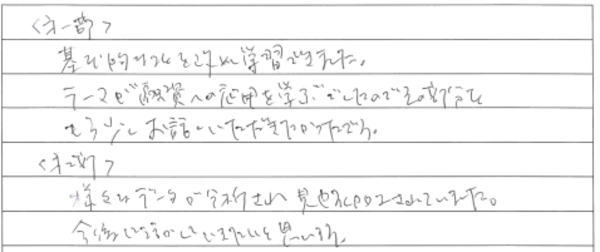 <オ一部>
基礎的なことを学習できました。
テーマが融資への応用を学ぶでしたのでその部分を
もう少しお話しいただきたかったです。
<オ二部>
様々なデータが分析され見やすくされていました。
今後に活かしていきたいと思います。